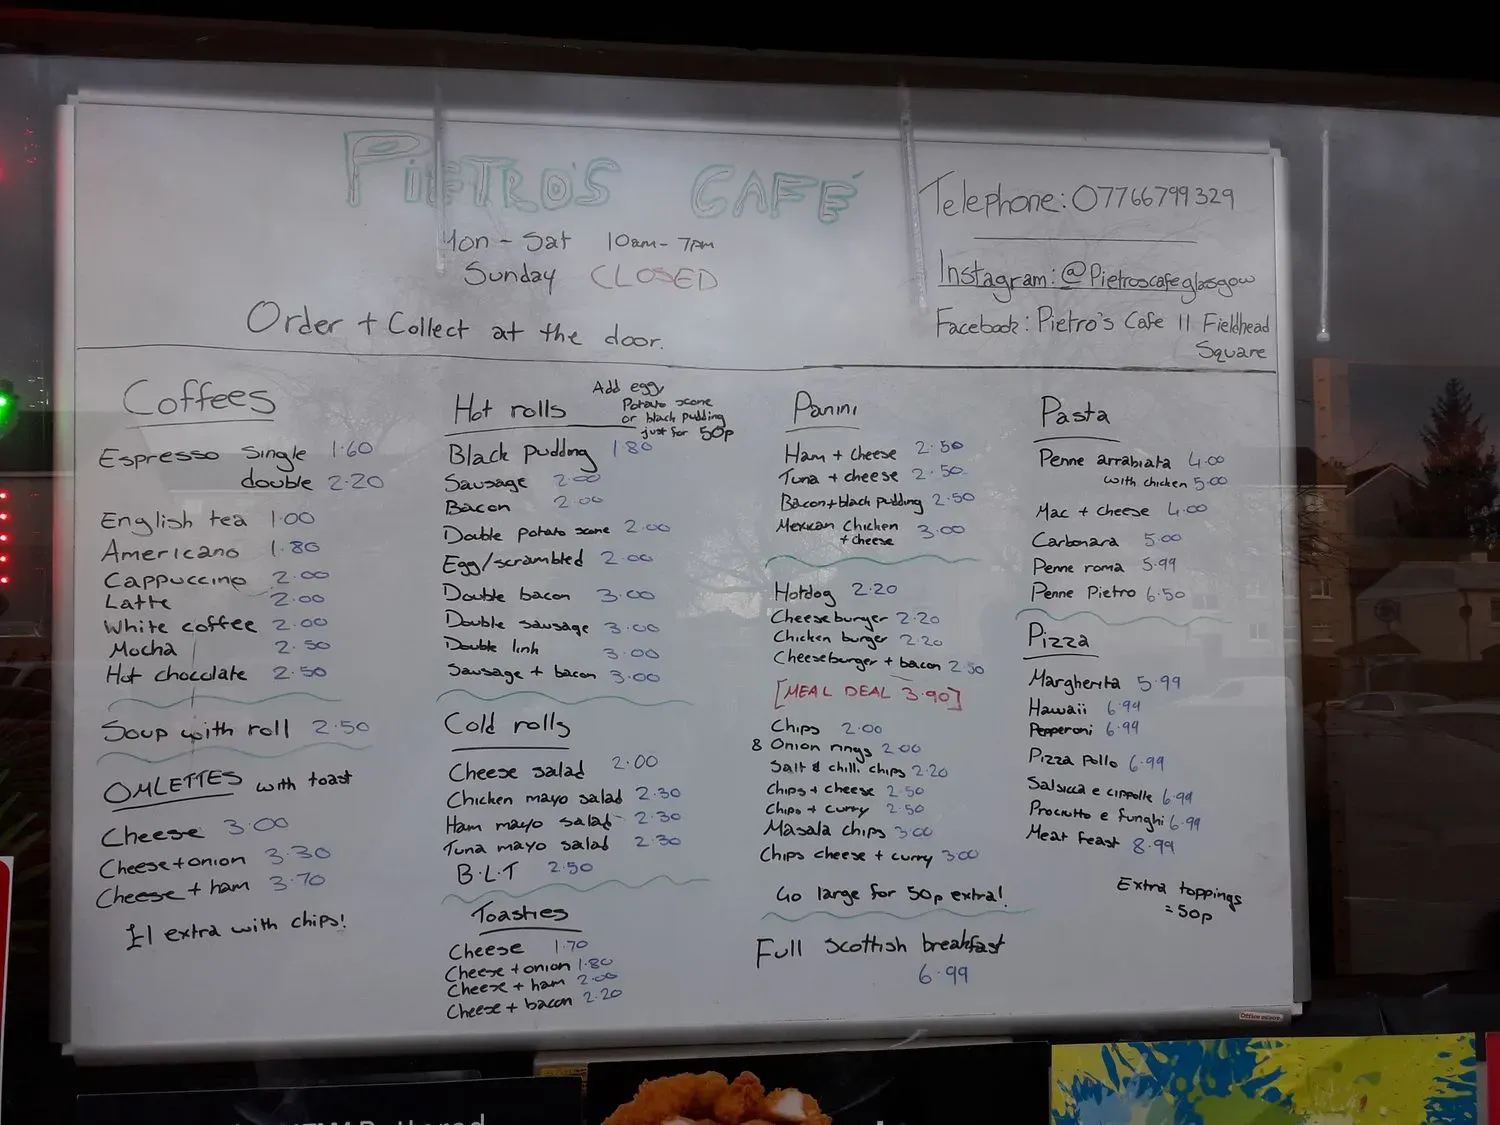 PIETRO'S CAFÉ
Mon - Sat 10am - 7pm
Sunday CLOSED
Order + Collect at the door.
Telephone: 07766799329
Instagram: @Pietroscafeglasgow
Facebook: Pietro's Cafe 11 Fieldhead
Square
Coffees
Espresso single 1.60
double 2.20
English tea 1.00
Americano 1.80
Cappuccino 2.00
Latte 2.00
White coffee 2.00
Mocha 2.50
Hot chocolate 2.50
Soup with roll 2.50
OMLETTES with toast
Cheese 3.00
Cheese + onion 3.30
Cheese + ham 3.70
£1 extra with chips!
Hot rolls
Add egg,
Potato scone
or black pudding
just for 50p
Black Pudding 1.80
Sausage 2.00
Bacon 2.00
Double potato scone 2.00
Egg/scrambled 2.00
Double bacon 3.00
Double sausage 3.00
Double link 3.00
Sausage + bacon 3.00
Cold rolls
Cheese salad 2.00
Chicken mayo salad 2.30
Ham mayo salad 2.30
Tuna mayo salad 2.30
B.L.T 2.50
Toasties
Cheese 1.70
Cheese + onion 1.80
Cheese + ham 2.00
Cheese + bacon 2.20
Panini
Ham + cheese 2.50
Tuna + cheese 2.50
Bacon + black pudding 2.50
Mexican Chicken 3.00
+ cheese
Hotdog 2.20
Cheeseburger 2.20
Chicken burger 2.20
Cheeseburger + bacon 2.50
[MEAL DEAL 3.90]
Chips 2.00
8 Onion rings 2.00
Salt & chilli chips 2.20
Chips + cheese 2.50
Chips + curry 2.50
Masala chips 3.00
Chips cheese + curry 3.00
Go large for 50p extra!
Full Scottish breakfast
6.99
Pasta
Penne arrabiata 4.00
with chicken 5.00
Mac + cheese 4.00
Carbonara 5.00
Penne roma 5.99
Penne Pietro 6.50
Pizza
Margherita 5.99
Hawaii 6.99
Pepperoni 6.99
Pizza Pollo 6.99
Salsicca e cippolle 6.99
Prociutto e funghi 6.99
Meat Feast 8.99
Extra toppings
= 50p
Office DEPOT